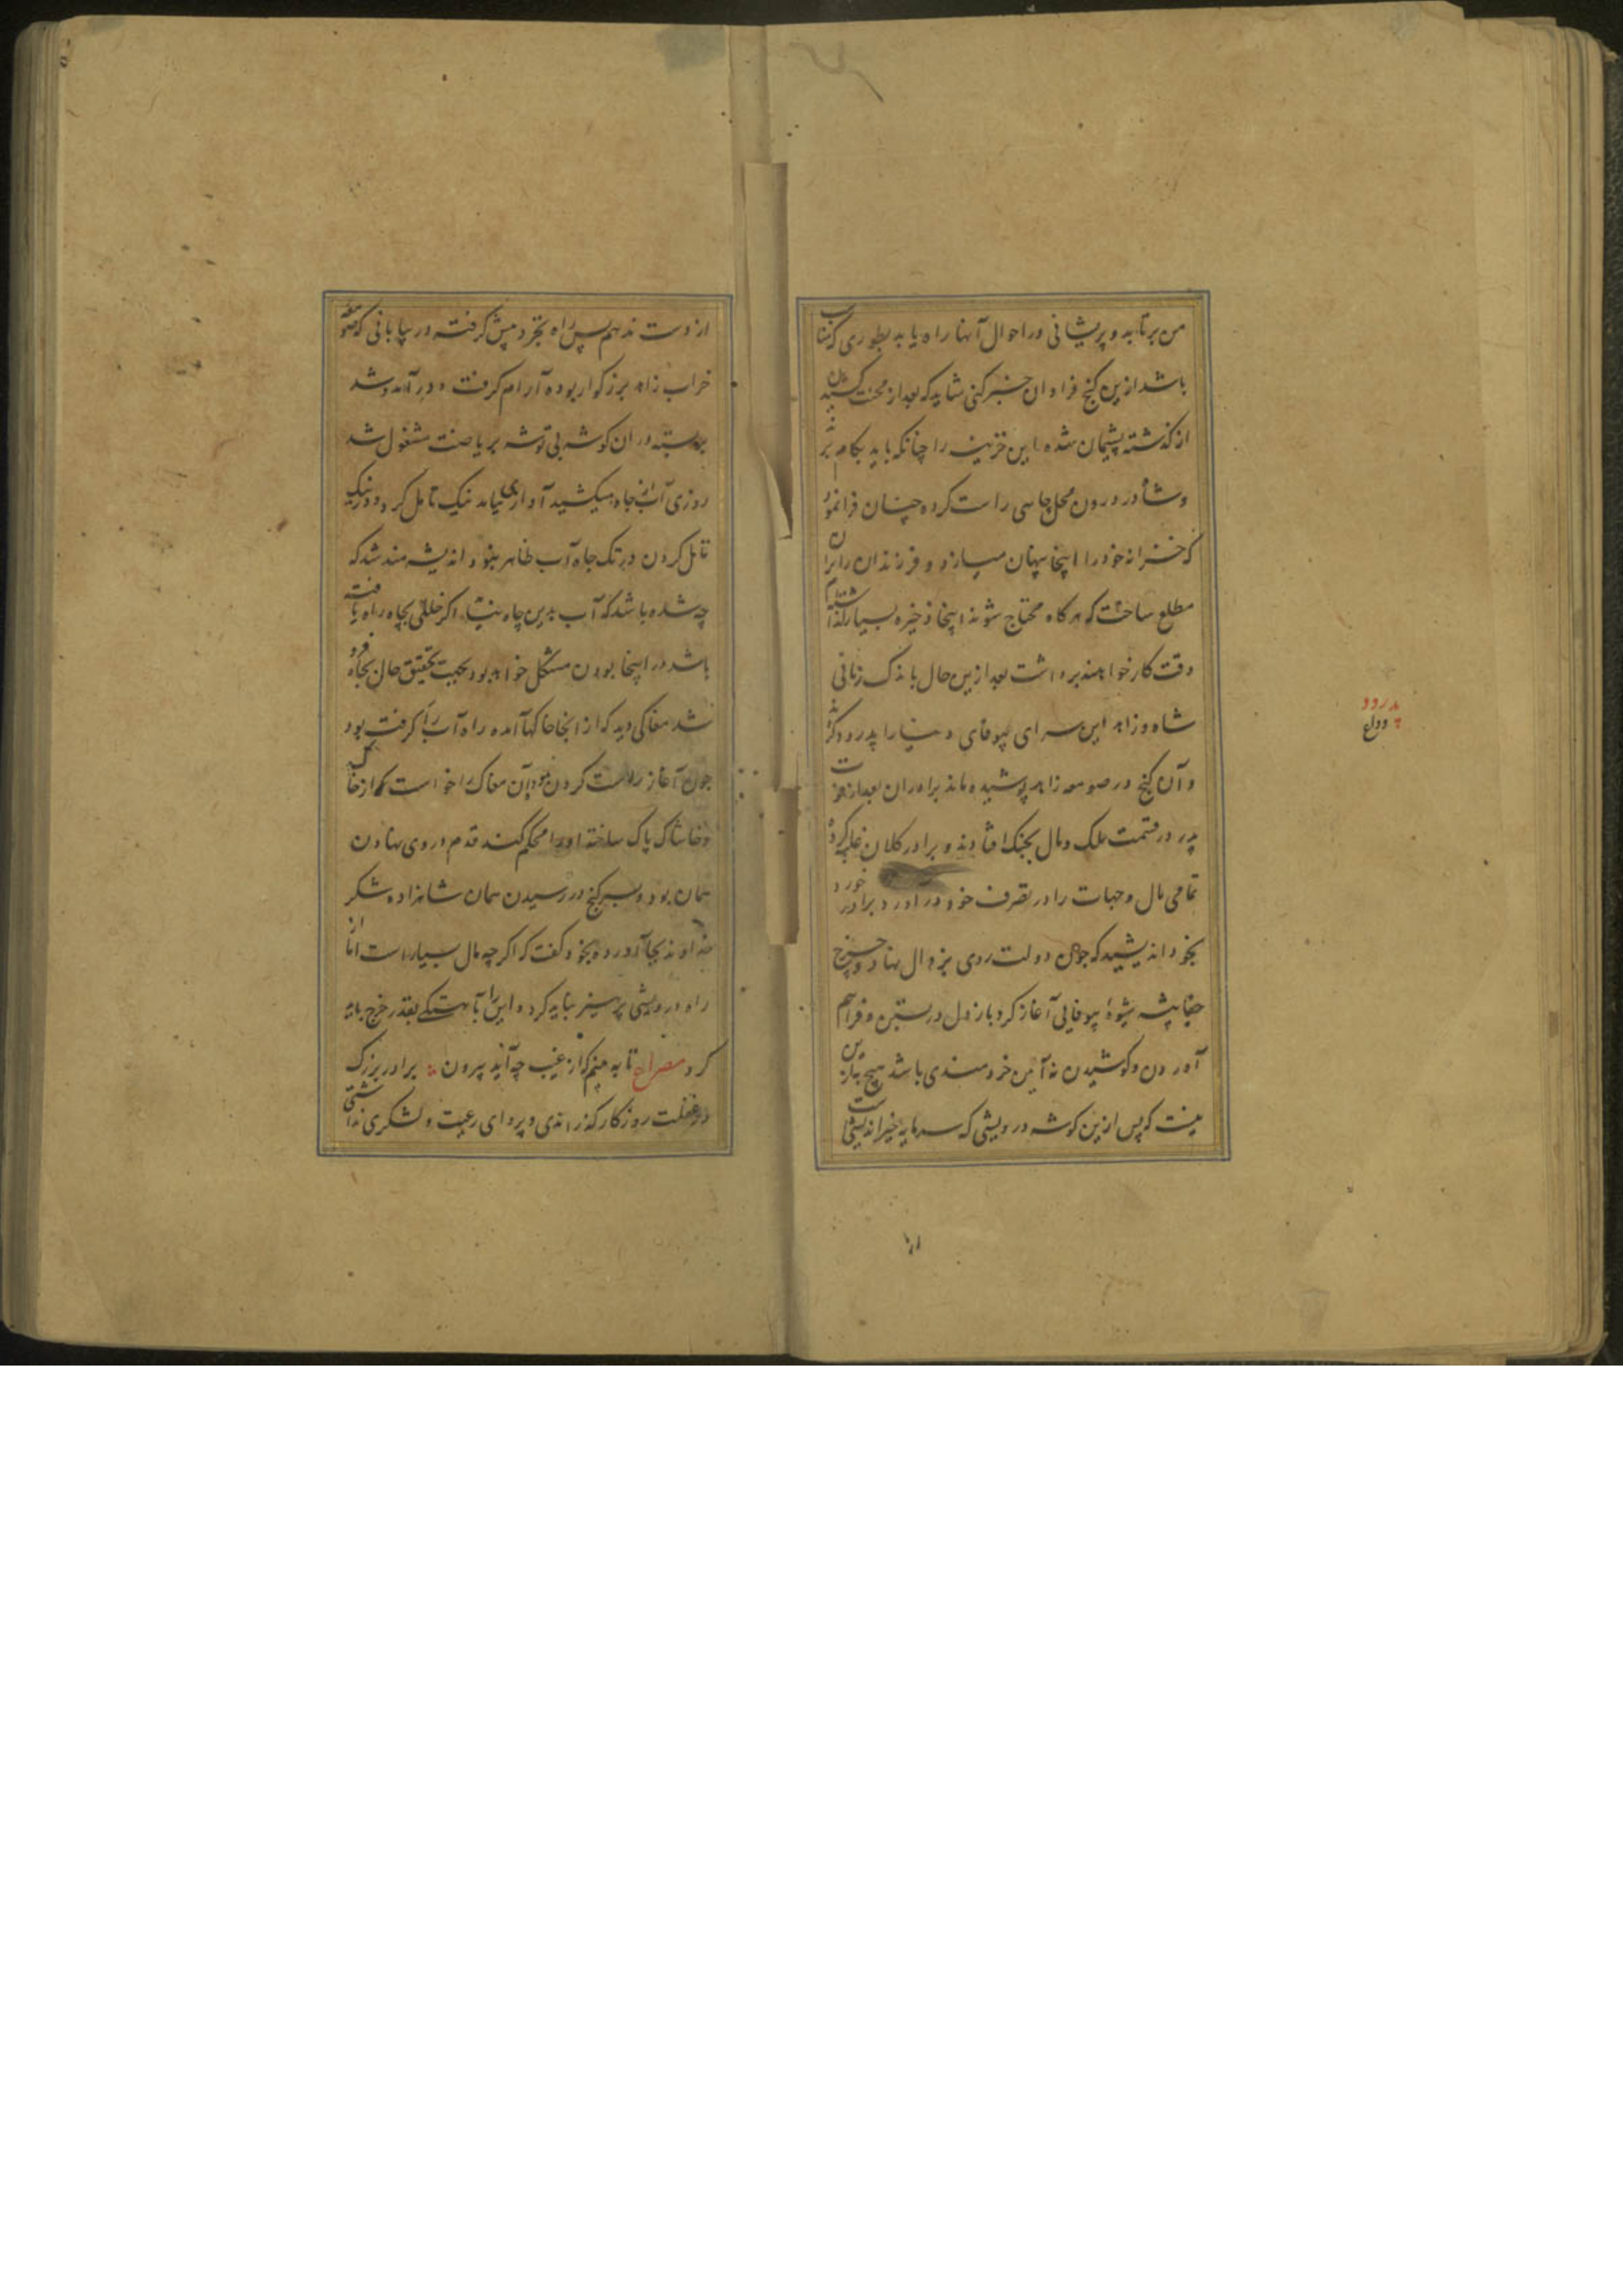 من برتابد و پریشانی در احوال آنها راه یابد بطوری که مناسب
باشد ازین کنج فراوان خبر کنی شاید که بعد از محنت کشیدن
از کذشته پشیمان شده این خزینه را چنانکه باید بکام برند
و شاه در درون محل جاهی راست کرده چنان فرانمود
که خزانه خود را اینجا پنهان میسازد و فرزندان را بران
مطلع ساخت که هرکاه محتاج شوند اینجا ذخیره بسیار کذاشته‌ام
وقت کار خواهند برداشت بعد ازین حال باندک زمانی
شاه و زاهد این سرای بیوفای دنیا را پدرود کردند
و آن کنج در صومعه زاهد پوشیده ماند برادران بعد از فوت
پدر در قسمت ملک و مال بجنک افتادند و برادر کلان غلبه کرده
تمامی مال و جهات را در تصرف خود دراورد برادر خورد
بخود اندیشید که چون دولت روی بزوال نهاد و چرخ
جفاپیشه شیوهٔ بیوفایی آغاز کرد باز دل دربستن و فراهم
آوردن و کوشیدن نه آیین خردمندی باشد هیچ به ازین
نیست که پس ازین کوشه درویشی که سرمایه خیراندیشی است
پدرود
وداع
از دست ندهم پس راه تجرد پیش کرفته در بیابانی که صومعه
خراب زاهد بزرکوار بوده آرام کرفت و در آمد و شد
بربسته در ان کوشه بی توشه بریاضت مشغول شد
روزی آب از جاه میکشید آوازی نیامد نیک تامل کرد و در نیک
تامل کردن در تک جاه آب ظاهر نبود اندیشه مند شد که
چه شده باشد که آب بدین چاه نیست اکر خللی بچاه راه یافته
باشد در اینجا بودن مشکل خواهد بود بجهت تحقیق حال بجاه فرو
شد مغاکی دید که از انجا خاکها آمده راه آب را کرفته بود
جون آغاز راست کردن نمود آن مغاک را خواست که از خاک
و خاشاک پاک ساخته اورا محکم کند قدم در وی نهادن
همان بود و بسر کنج در رسیدن همان شاهزاده شکر
خداوند بجا آورده بخود کفت که اکرچه مال بسیار است اما از
راه درویشی پرهیز نباید کرد و این را بآهستکی بقدر خرج باید
کرد مصراع تا به بینم که از غیب چه آید بیرون برادر بزرک
در غفلت روزکار کذراندی و پروای رعیت و لشکری نداشتی